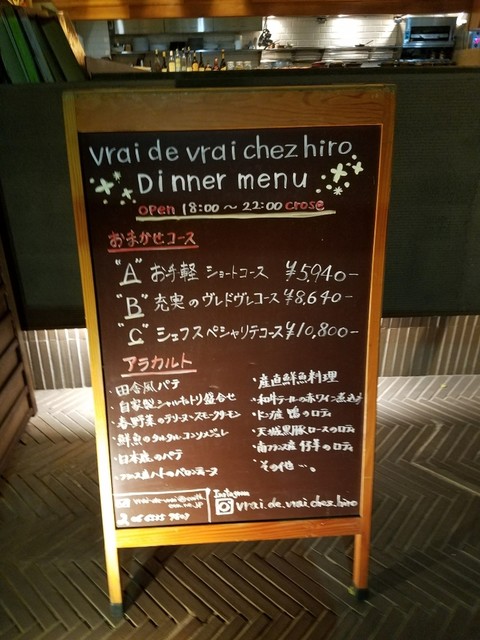 vrai de vrai chez hiro
Dinner menu
open 18:00 ～ 22:00 crose
おまかせコース
"A" お手軽 ショートコース ¥5,940-
"B" 充実のヴレドヴレコース ¥8,640-
"C" シェフスペシャリテコース ¥10,800-
アラカルト
・田舎風パテ
・自家製シャルキュトリ盛合せ
・春野菜のテリーヌ・スモークサーモン
・鮮魚のタルタルコンソメジュレ
・日本鹿のパテ
・フランス産ハトのバロンティーヌ
・産直鮮魚料理
・和牛テールの赤ワイン煮込み
・ドンブ産 鴨のロティ
・天城黒豚ロースのロティ
・南フランス産 仔羊のロティ
・その他…。
Instagram
vrai.de.vrai.chez.hiro